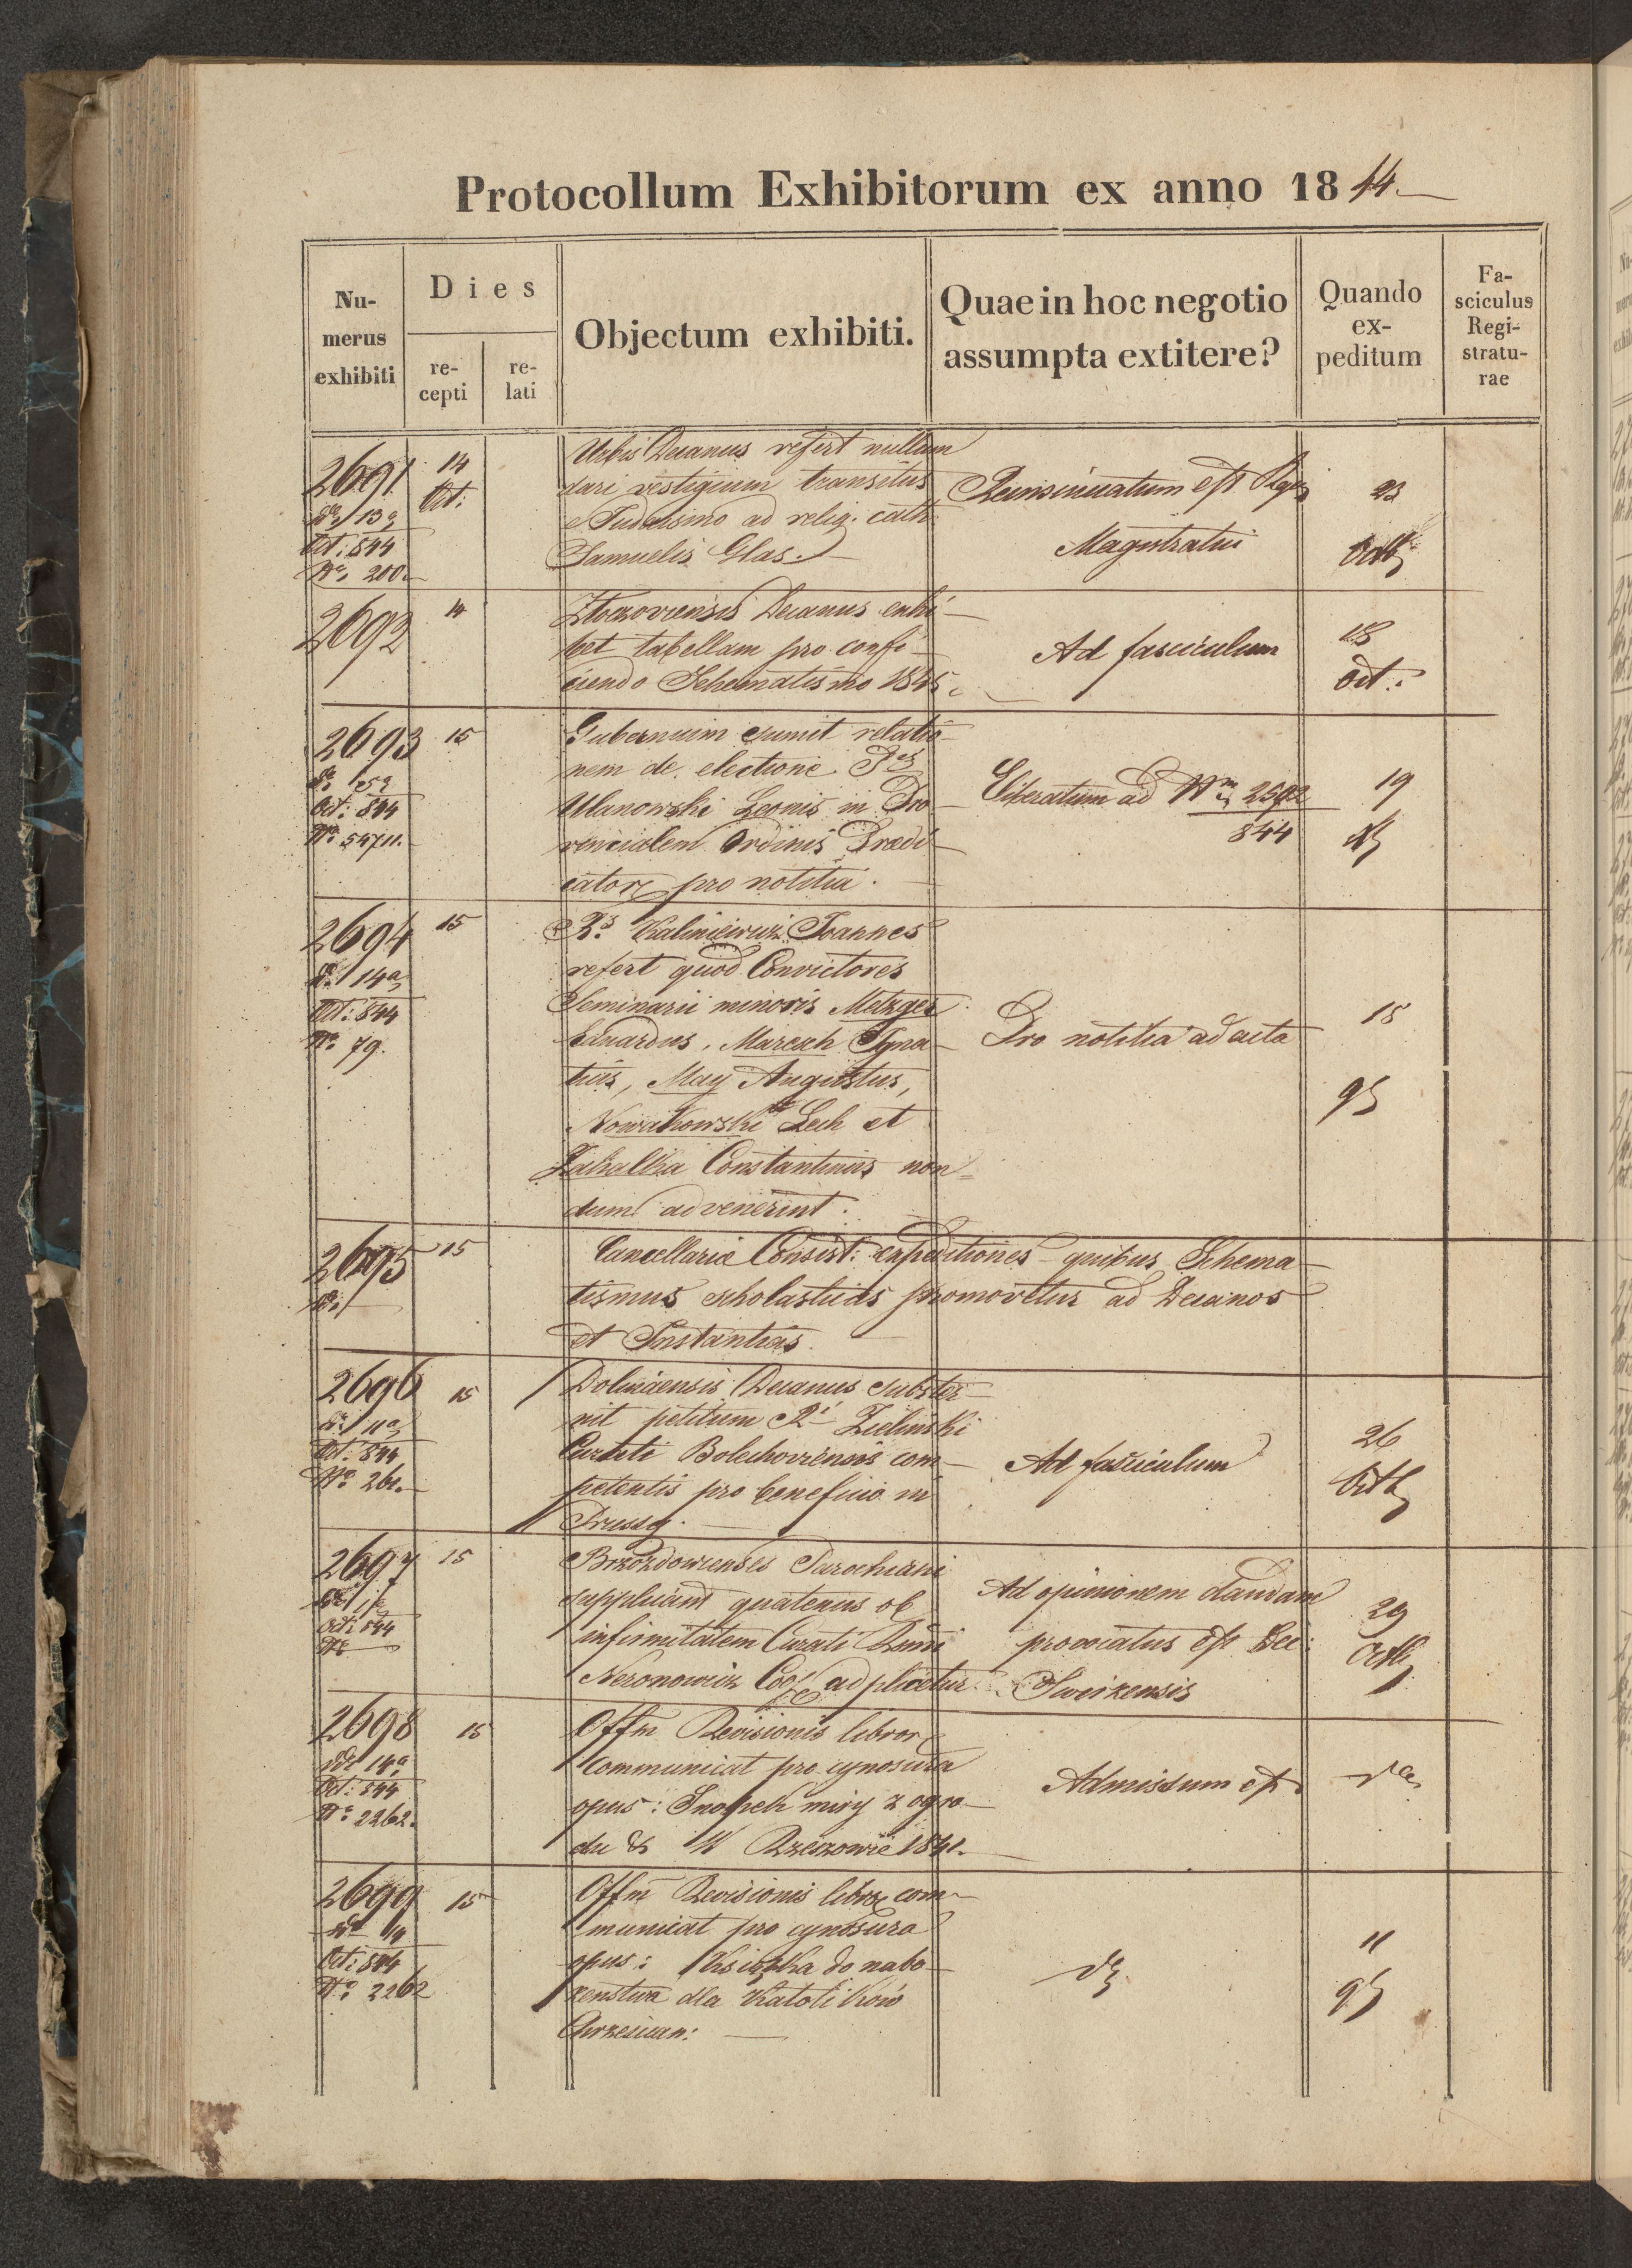 Protocollum Exhibitorum ex anno 1844
Nu-
merus
exhibiti
Dies
re-
cepti
re-
lati
Objectum exhibiti.
Quae in hoc negotio
assumpta extitere?
Quando
ex-
peditum
Fa-
sciculus
Regi-
stratu-
rae
2691
13
Oct: 844
No 200.
14
Oct:
Urbis Decanus refert nullum
dari vestigium transitus
e Judaismo ad relig. cath:
Samuelis Glas.
Reinsinuatum est
Magistratui
23
2692
14
Zloczoviensis Decanus exhi-
bet tabellam pro confi-
ciendo Schematismo 1845.
Ad fasciculum
18
Oct:
2693
Oct: 844
No 54711.
15
Gubernium sumit relatio-
nem de electione
Ulanowski Leonis in Pro-
vincialem Ordinis Praedi-
cator pro notitia.
ad Nm 2592
844
19
2694
14a
Oct: 844
No 79.
15
Rs Kaliniewicz Joannes
refert quod Convictores
Seminarii minoris Metzger
Eduardus, Marcah Igna-
tius, May Augustus,
Nowakowski Lech et
Zahalka Constantinus non-
dum advenerint.
Pro notitia ad acta
18
2695
15
Cancellariae Consist: expeditiones quibus Schema-
tismus scholasticus promovetur ad Decanos
et Instantias.
2696
11a
Oct: 844
No 261.
15
Dolinaensis Decanus subster-
nit petitum Ri Zielinski
Curati Bolechoviensis com-
petentis pro beneficio in
Prussy.
Ad fasciculum
26
2697
Oct: 844
No
15
Brzozdowienses Parochiani
supplicant quatenus ob
infirmitatem Curati
Neronowicz adplicetur.
Ad opinionem dandam
provocatus est Dec:
Swirzensis
29
2698
14a
Oct: 844
No 2262.
15
Offm Revisionis libror
communicat pro cynosura
opus: Snopek miry z ogro-
du & W Rzeszowie 1841.
Admissum est
2699
Oct: 844
No 2262
15
Offm Revisionis libr com-
municat pro cynosura
opus: Książka do nabo-
żenstwa dla Katolików
Chrzescian:
11